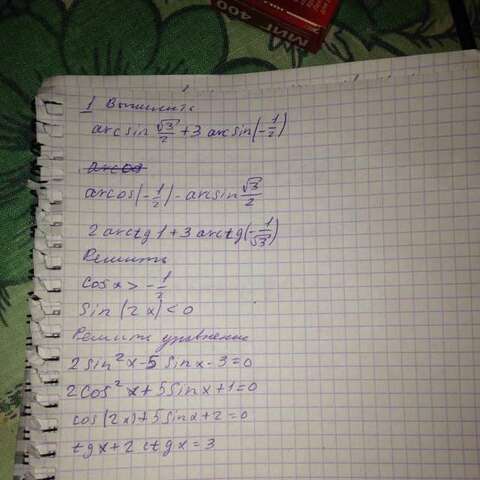 МИГ 400
1 Вычислить
arcsin √3/2 + 3 arcsin(-1/2)
arcos(-1/2) - arcsin √3/2
2 arctg 1 + 3 arctg(-1/√3)
Решить
cos x > -1/2
sin (2x) < 0
Решить уравнение
2 sin² x - 5 sin x - 3 = 0
2 cos² x + 5 sin x + 1 = 0
cos (2x) + 5 sin x + 2 = 0
tg x + 2 ctg x = 3